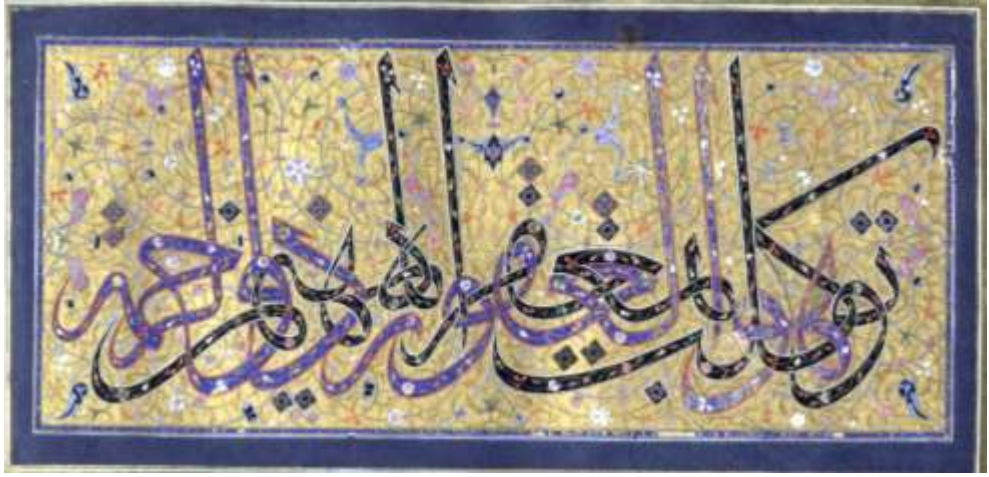 توكلت بمغفرة المهيمن
هو الغفور ذو الرحمة